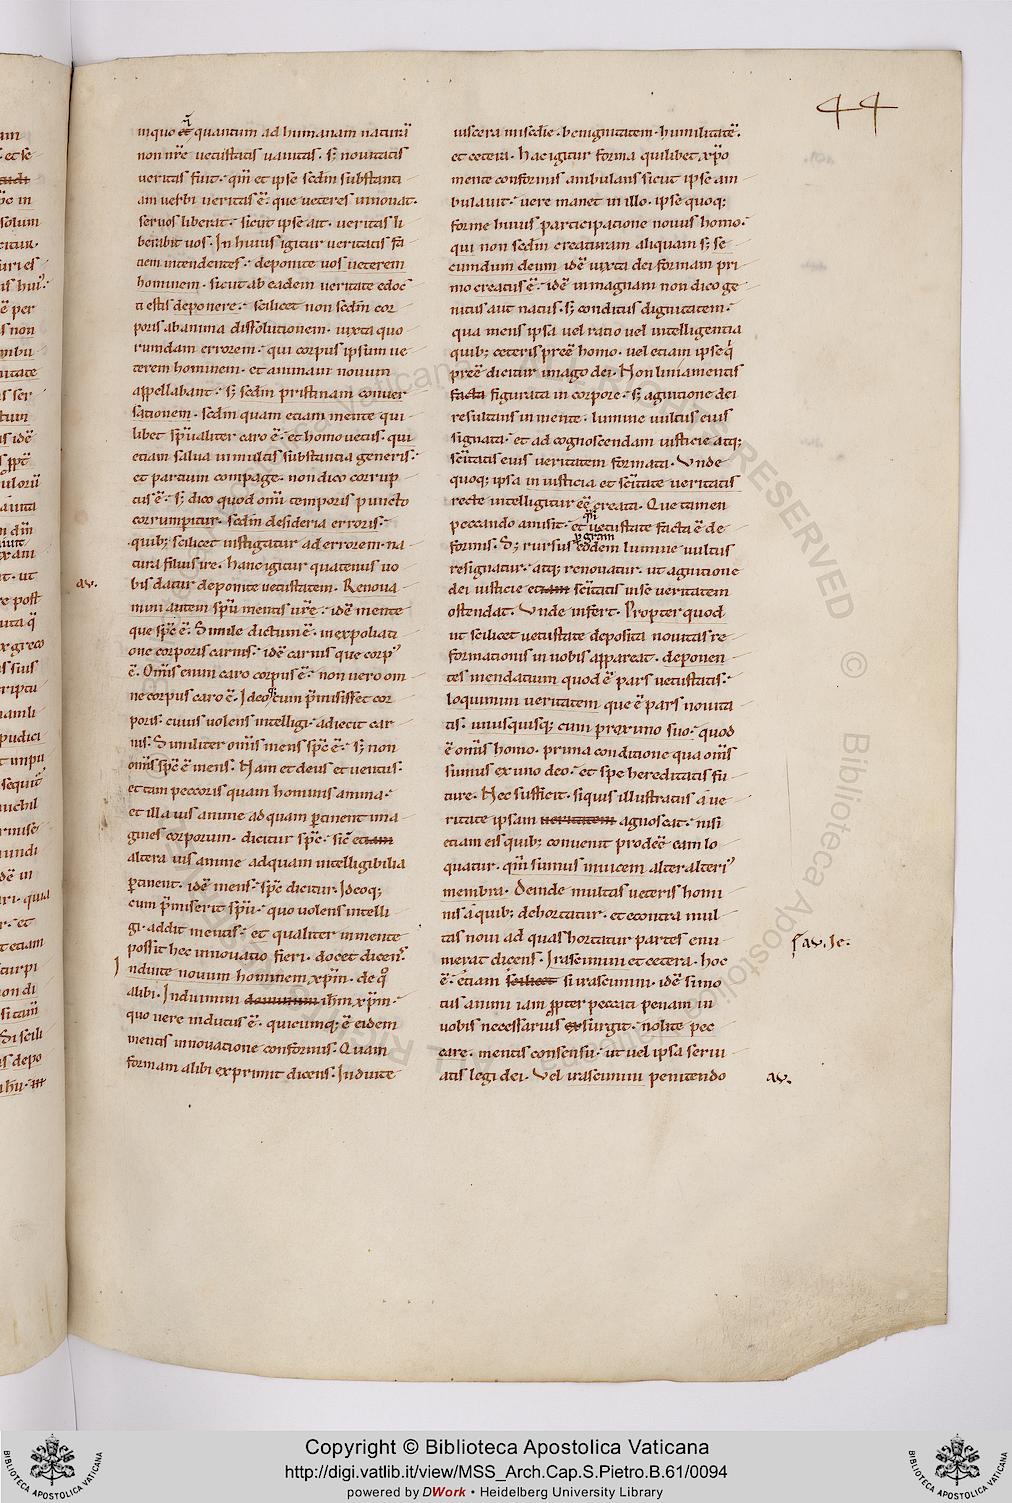 44
inquo et quantum ad humanam naturā
non nr̄e uetustatis uanitas. s; nouitatis
ueritas fuit. qm̄ et ipse scdm̄ substanti
am uerbi ueritas ē. que ueteres innouat.
seruos liberat. sicut ipse ait. ueritas li
berabit uos. In huius igitur ueritatis fa
ciem intendentes. deponite uos ueterem
hominem. sicut ab eadem ueritate edoc
ti estis deponere. scilicet non scdm̄ cor
poris ab anima dissolutionem. iuxta quo
rumdam errorem. qui corpus ipsum ue
terem hominem. et animam nouum
appellabant. s; scdm̄ pristinam conuer
sationem. scdm̄ quam etiam mente qui
libet sp̄ualiter caro ē. et homo uetus. qui
etiam salua in multis substantia generis.
et partium compage. non dico corrup
tus ē. s; dico quod omī temporis puncto
corrumpitur. scdm̄ desideria erroris.
quib; scilicet instigatur ad errorem. na
tura filius ire. hanc igitur quatenus uo
bis datur deponite uetustatem. Renoua
mini autem sp̄u mentis ur̄e. idē mente
que sp̄c ē. Simile dictum ē. in expoliati
one corporis carnis. idē carnis que corp'
ē. Om̄is enim caro corpus ē. non uero om
ne corpus caro ē. Ideo cum p̄misisset cor
poris. cuius uolens intelligi. adiecit car
nis. Similiter om̄is mens sp̄c ē. s; non
om̄is sp̄c ē mens. Nam et deus et uentus.
et tam peccoris quam hominis anima.
et illa uis anime ad quam p̄tinent ima
gines corporum. dicitur sp̄c. sic̄ etiam
altera uis anime ad quam intelligibilia
p̄tinent. idē mens. sp̄c dicitur. Ideoq;
cum p̄miserit sp̄u. quo uolens intelli
gi. addit mentis. et qualiter in mente
possit hec innouatio fieri. docet dicens.
Induite nouum hominem xp̄m. de q̊
alibi. Induimini dominum ih̄m xp̄m.
quo uere indutus ē. quicumq; ē eidem
mentis innouatione conformis. Quam
formam alibi exprimit dicens. Induite
av.
uiscera misc̄die. benignitatem. humilitatē.
et cetera. hac igitur forma quilibet xp̄o
mente conformis ambulans sicut ipse am
bulauit. uere manet in illo. ipse quoq;
forme huius participatione nouus homo.
qui non scdm̄ creaturam aliquam s; se
cundum deum idē iuxta dei formam pri
mo creatus ē. idē in magnam non dico ge
nitus aut natus. s; conditus dignitatem.
qua mens ipsa uel ratio uel intelligentia
quib; ceteris preē homo. uel etiam ipse q̄
preē dicitur imago dei. Non liniamentis
facta figurata in corpore. s; agnitione dei
resultans in mente. lumine uultus eius
signata. et ad cognoscendam iusticie atq;
sc̄itatis eius ueritatem formata. Vnde
quoq; ipsa in iusticia et sc̄itate ueritatis
recte intelligitur eē creata. Que tamen
peccando amisit. et uetustate facta ē de
formis. S; rursus eodem lumine uultus
resignatur. atq; renouatur. ut agnitione
dei iusticie etiam sc̄itatis in se ueritatem
ostendat. Vnde infert. Propter quod
ut scilicet uetustate deposita nouitas re
formationis in uobis appareat. deponen
tes mendatium quod ē pars uetustatis.
loquimini ueritatem que ē pars nouita
tis. unusquisq; cum proximo suo. quod
ē om̄is homo. prima conditione qua om̄s
sumus ex uno deo. et spe hereditatis fu
ture. Hec sufficit. siquis illustratus a ue
ritate ipsam ueritatem agnoscat. nisi
etiam eis quib; conuenit prodeē eam lo
quatur. qm̄ sumus inuicem alter alteri'
membra. Deinde multas ueteris homi
nis a quib; dehortatur. et econtra mul
tas noui ad quas hortatur partes enu
merat dicens. Irascimini et cetera. hoc
ē. etiam scilicet si irascimini. idē si mo
tus animi iam pp̄ter peccati penam in
uobis necessarius exsurgit. nolite pec
care. mentis consensu. ut uel ipsa serui
atis legi dei. Vel irascimini penitendo
av. Ie.
av.
Copyright © Biblioteca Apostolica Vaticana
http://digi.vatlib.it/view/MSS_Arch.Cap.S.Pietro.B.61/0094
powered by DWork • Heidelberg University Library
BIBLIOTECA APOSTOLICA VATICANA
BIBLIOTECA APOSTOLICA VATICANA